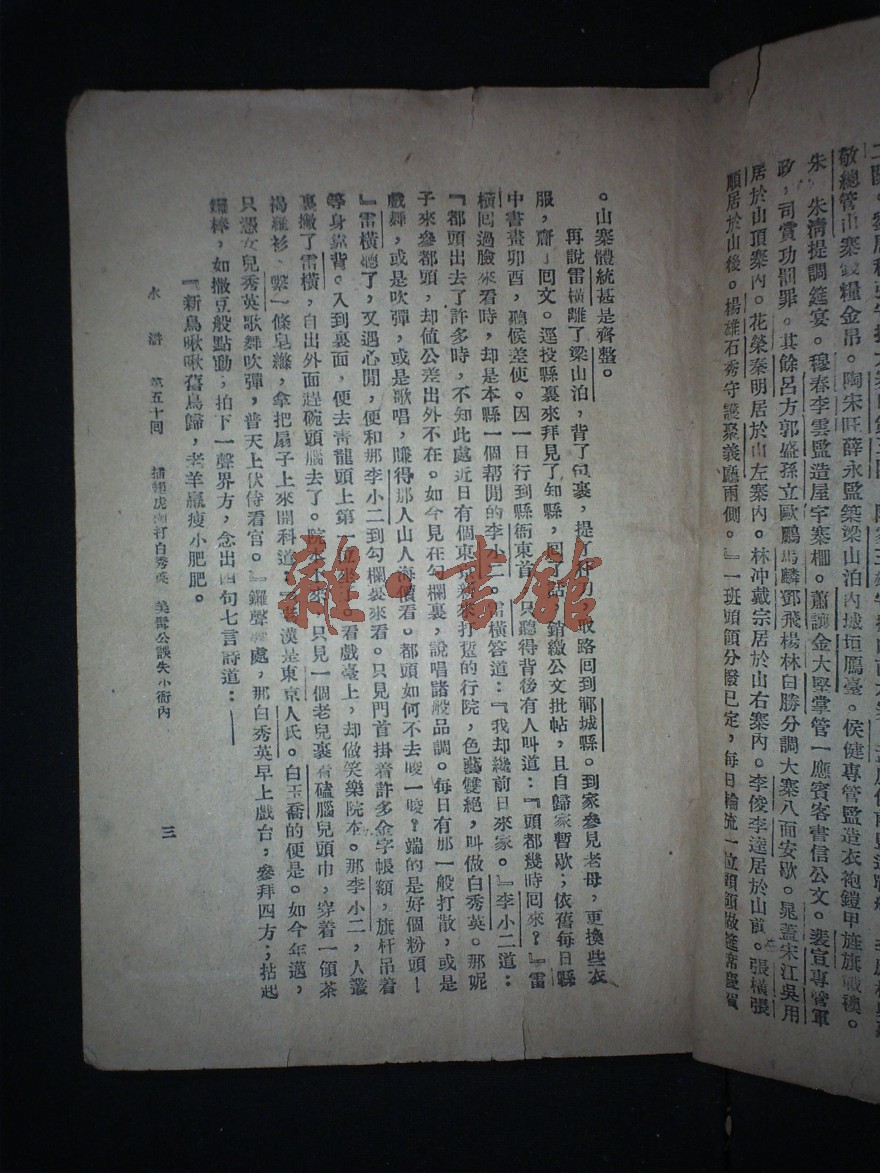 敬總管山寨錢糧金帛。陶宋旺薛永監築梁山泊內城垣鴈臺。侯健專管監造衣袍鎧甲旌旗戰襖。
朱 朱清提調筵宴。穆春李雲監造屋宇寨柵。蕭讓金大堅掌管一應賓客書信公文。裴宣專管軍
政，司賞功罰罪。其餘呂方郭盛孫立歐鵬馬麟鄧飛楊林白勝分調大寨八面安歇。晁蓋宋江吳用
居於山頂寨內。花榮秦明居於山左寨內。林冲戴宗居於山右寨內。李俊李逵居於山前。張橫張
順居於山後。楊雄石秀守護聚義廳兩側。』一班頭領分撥已定，每日輪流一位頭領做筵席慶賀
。山寨體統甚是齊整。
再說雷橫離了梁山泊，背了包裹，提 取路回到鄆城縣。到家參見老母，更換些衣
服，齎了回文。逕投縣裏來拜見了知縣，回了話，銷繳公文批帖，且自歸家暫歇；依舊每日縣
中書畫卯酉，聽候差使。因一日行到縣衙東首，只聽得背後有人叫道：『頭都幾時回來？』雷
橫回過臉來看時，却是本縣一個幫閒的李小二。雷橫答道：『我却纔前日來家。』李小二道：
『都頭出去了許多時，不知此處近日有個東京新來打踅的行院，色藝雙絕，叫做白秀英。那妮
子來參都頭，却值公差出外不在。如今見在勾欄裏，說唱諸般品調。每日有那一般打散，或是
戲舞，或是吹彈，或是歌唱，賺得那人山人海價看。都頭如何不去睃一睃？端的是好個粉頭！
』雷橫聽了，又遇心閒，便和那李小二到勾欄裏來看。只見門首掛着許多金字帳額，旗杆吊着
等身靠背。入到裏面，便去青龍頭上第一位 看戲臺上，却做笑樂院本。那李小二，人叢
裏撇了雷橫，自出外面趕碗頭腦去了。院本下來，只見一個老兒裹着磕腦兒頭巾，穿着一領茶
褐羅衫，繫一條皂縧，拿把扇子上來開科道：『老漢是東京人氏。白玉喬的便是。如今年邁，
只憑女兒秀英歌舞吹彈，普天上伏侍看官。』鑼聲響處，那白秀英早上戲台，參拜四方；拈起
鑼棒，如撒豆般點動；拍下一聲界方，念出四句七言詩道：
『新鳥啾啾舊鳥歸，老羊羸瘦小肥肥。
水滸 第五十回 插翅虎枷打白秀英 美髯公誤失小衙內 三
雜·書館